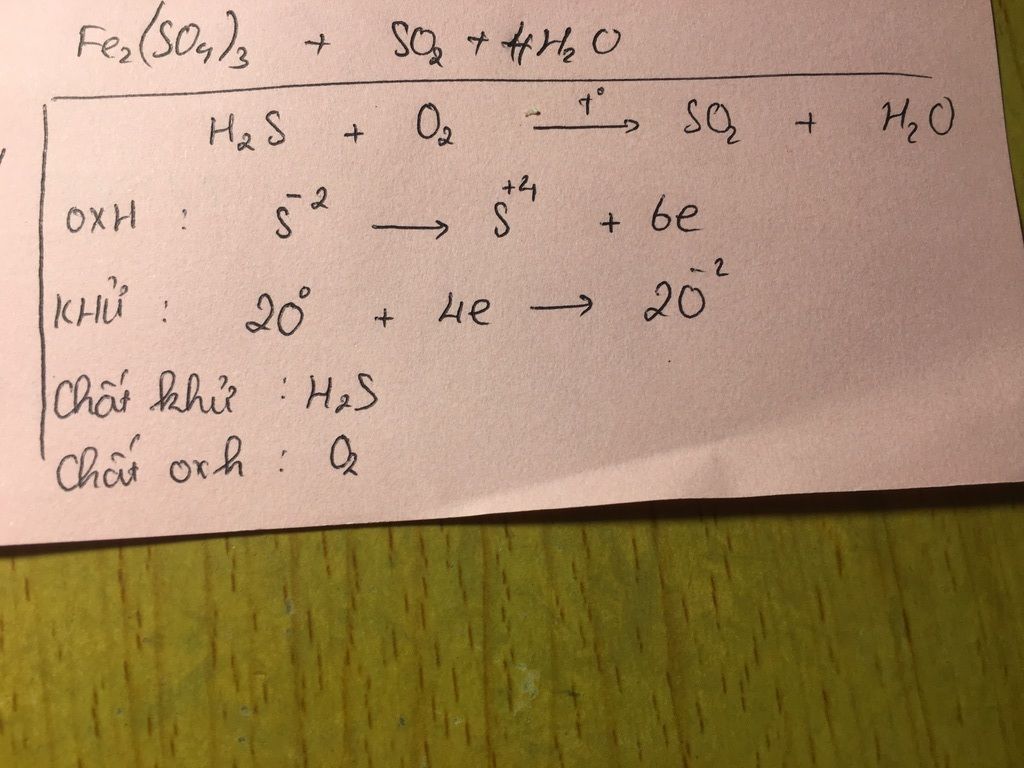 Fe₂(SO₄)₃ + SO₂ + 4H₂O
H₂S + O₂ —t°→ SO₂ + H₂O
OXH : S⁻² → S⁺⁴ + 6e
KHỬ : 2O⁰ + 4e → 2O⁻²
Chất khử : H₂S
Chất oxh : O₂